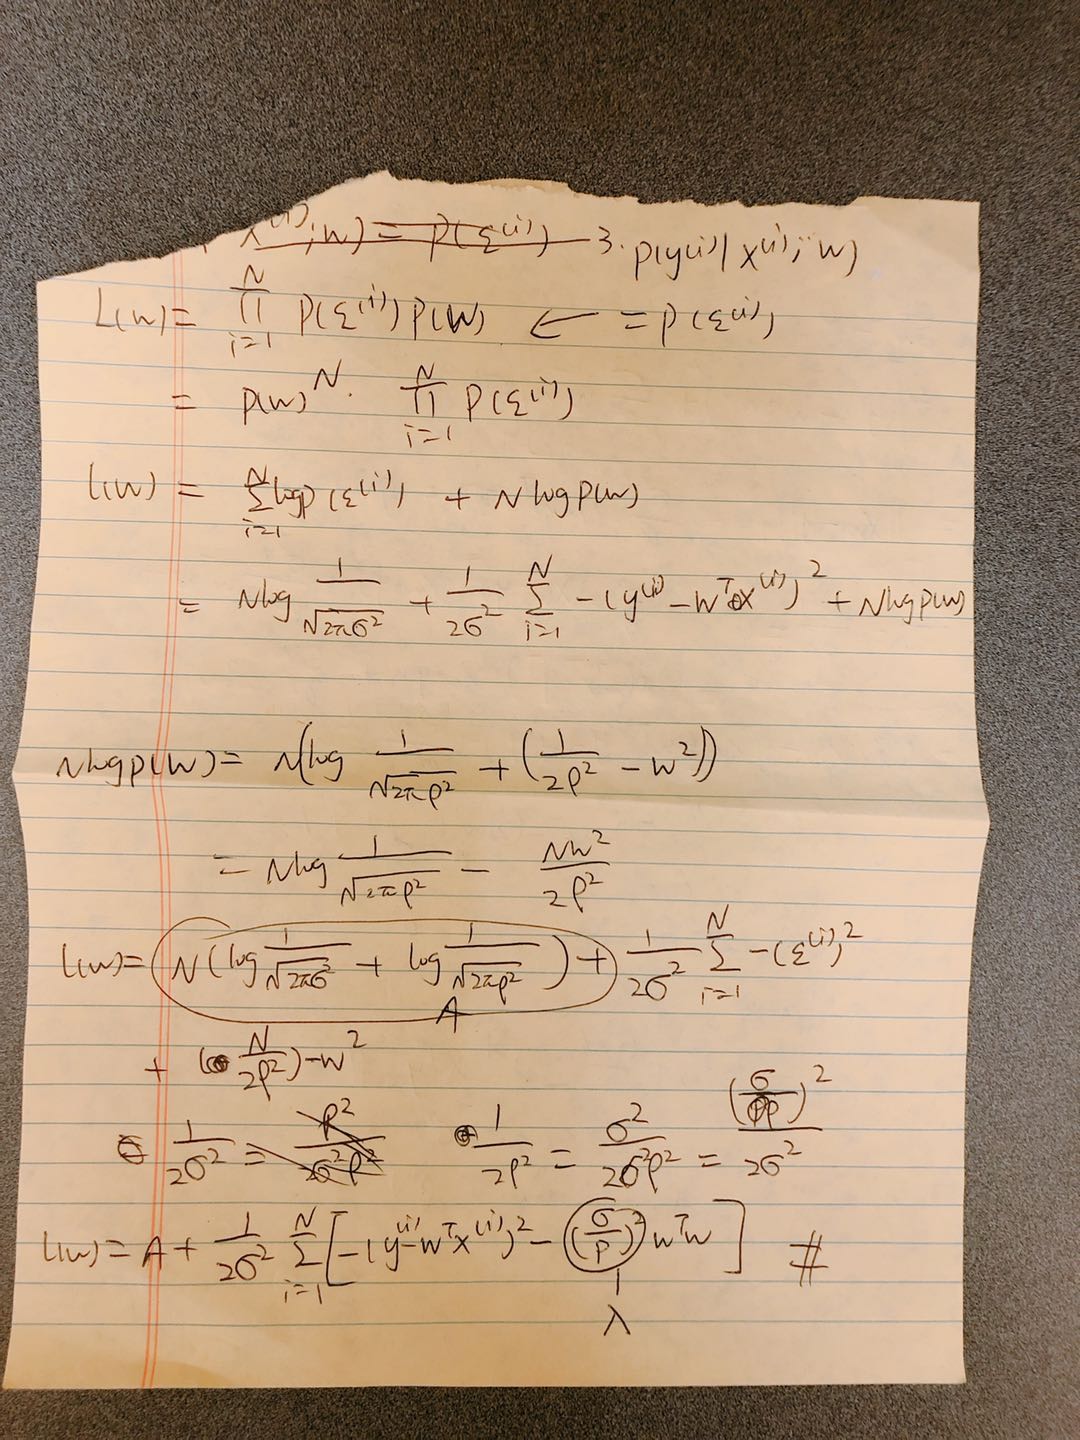 x^(i); w) = p(ε^(i)) 3. p(y^(i) | x^(i); w)
L(w) = ∏_{i=1}^{N} p(ε^(i)) p(w) ← = p(ε^(i))
= p(w)^N · ∏_{i=1}^{N} p(ε^(i))
l(w) = ∑_{i=1}^{N} log p(ε^(i)) + N log p(w)
= N log 1/√(2πσ²) + 1/(2σ²) ∑_{i=1}^{N} -(y^(i) - w^T x^(i))² + N log p(w)
N log p(w) = N(log 1/√(2πρ²) + (1/(2ρ²) - w²))
= N log 1/√(2πρ²) - Nw²/(2ρ²)
l(w) = N(log 1/√(2πσ²) + log 1/√(2πρ²)) + 1/(2σ²) ∑_{i=1}^{N} -(ε^(i))²
A
+ (N/(2ρ²)) - w²
1/(2σ²) = ρ²/(2σ²ρ²) 1/(2ρ²) = σ²/(2σ²ρ²) = (σ/ρ)²/(2σ²)
l(w) = A + 1/(2σ²) ∑_{i=1}^{N} [-(y^(i) - w^T x^(i))² - (σ/ρ)² w^T w] #
λ